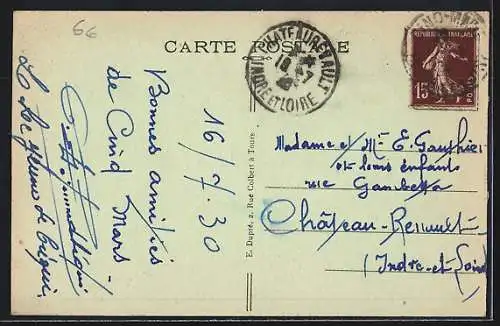 66
CARTE POSTALE
CHATEAURENAULT
INDRE ET LOIRE
REPUBLIQUE FRANÇAISE
15
16/7/30
Bonnes amitiés
de Cinq Mars.
E. Dupré, 2, Rue Colbert à Tours
Madame et Mr E. Gauthier
et leurs enfants
rue Gambetta
Château-Renault
(Indre-et-Loire)